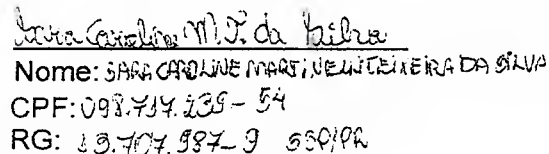 Sara Caroline M. T. da Silva
Nome: SARA CAROLINE MARTINELLI TEIXEIRA DA SILVA
CPF: 098.737.239-54
RG: 13.707.987-9 SSP/PR